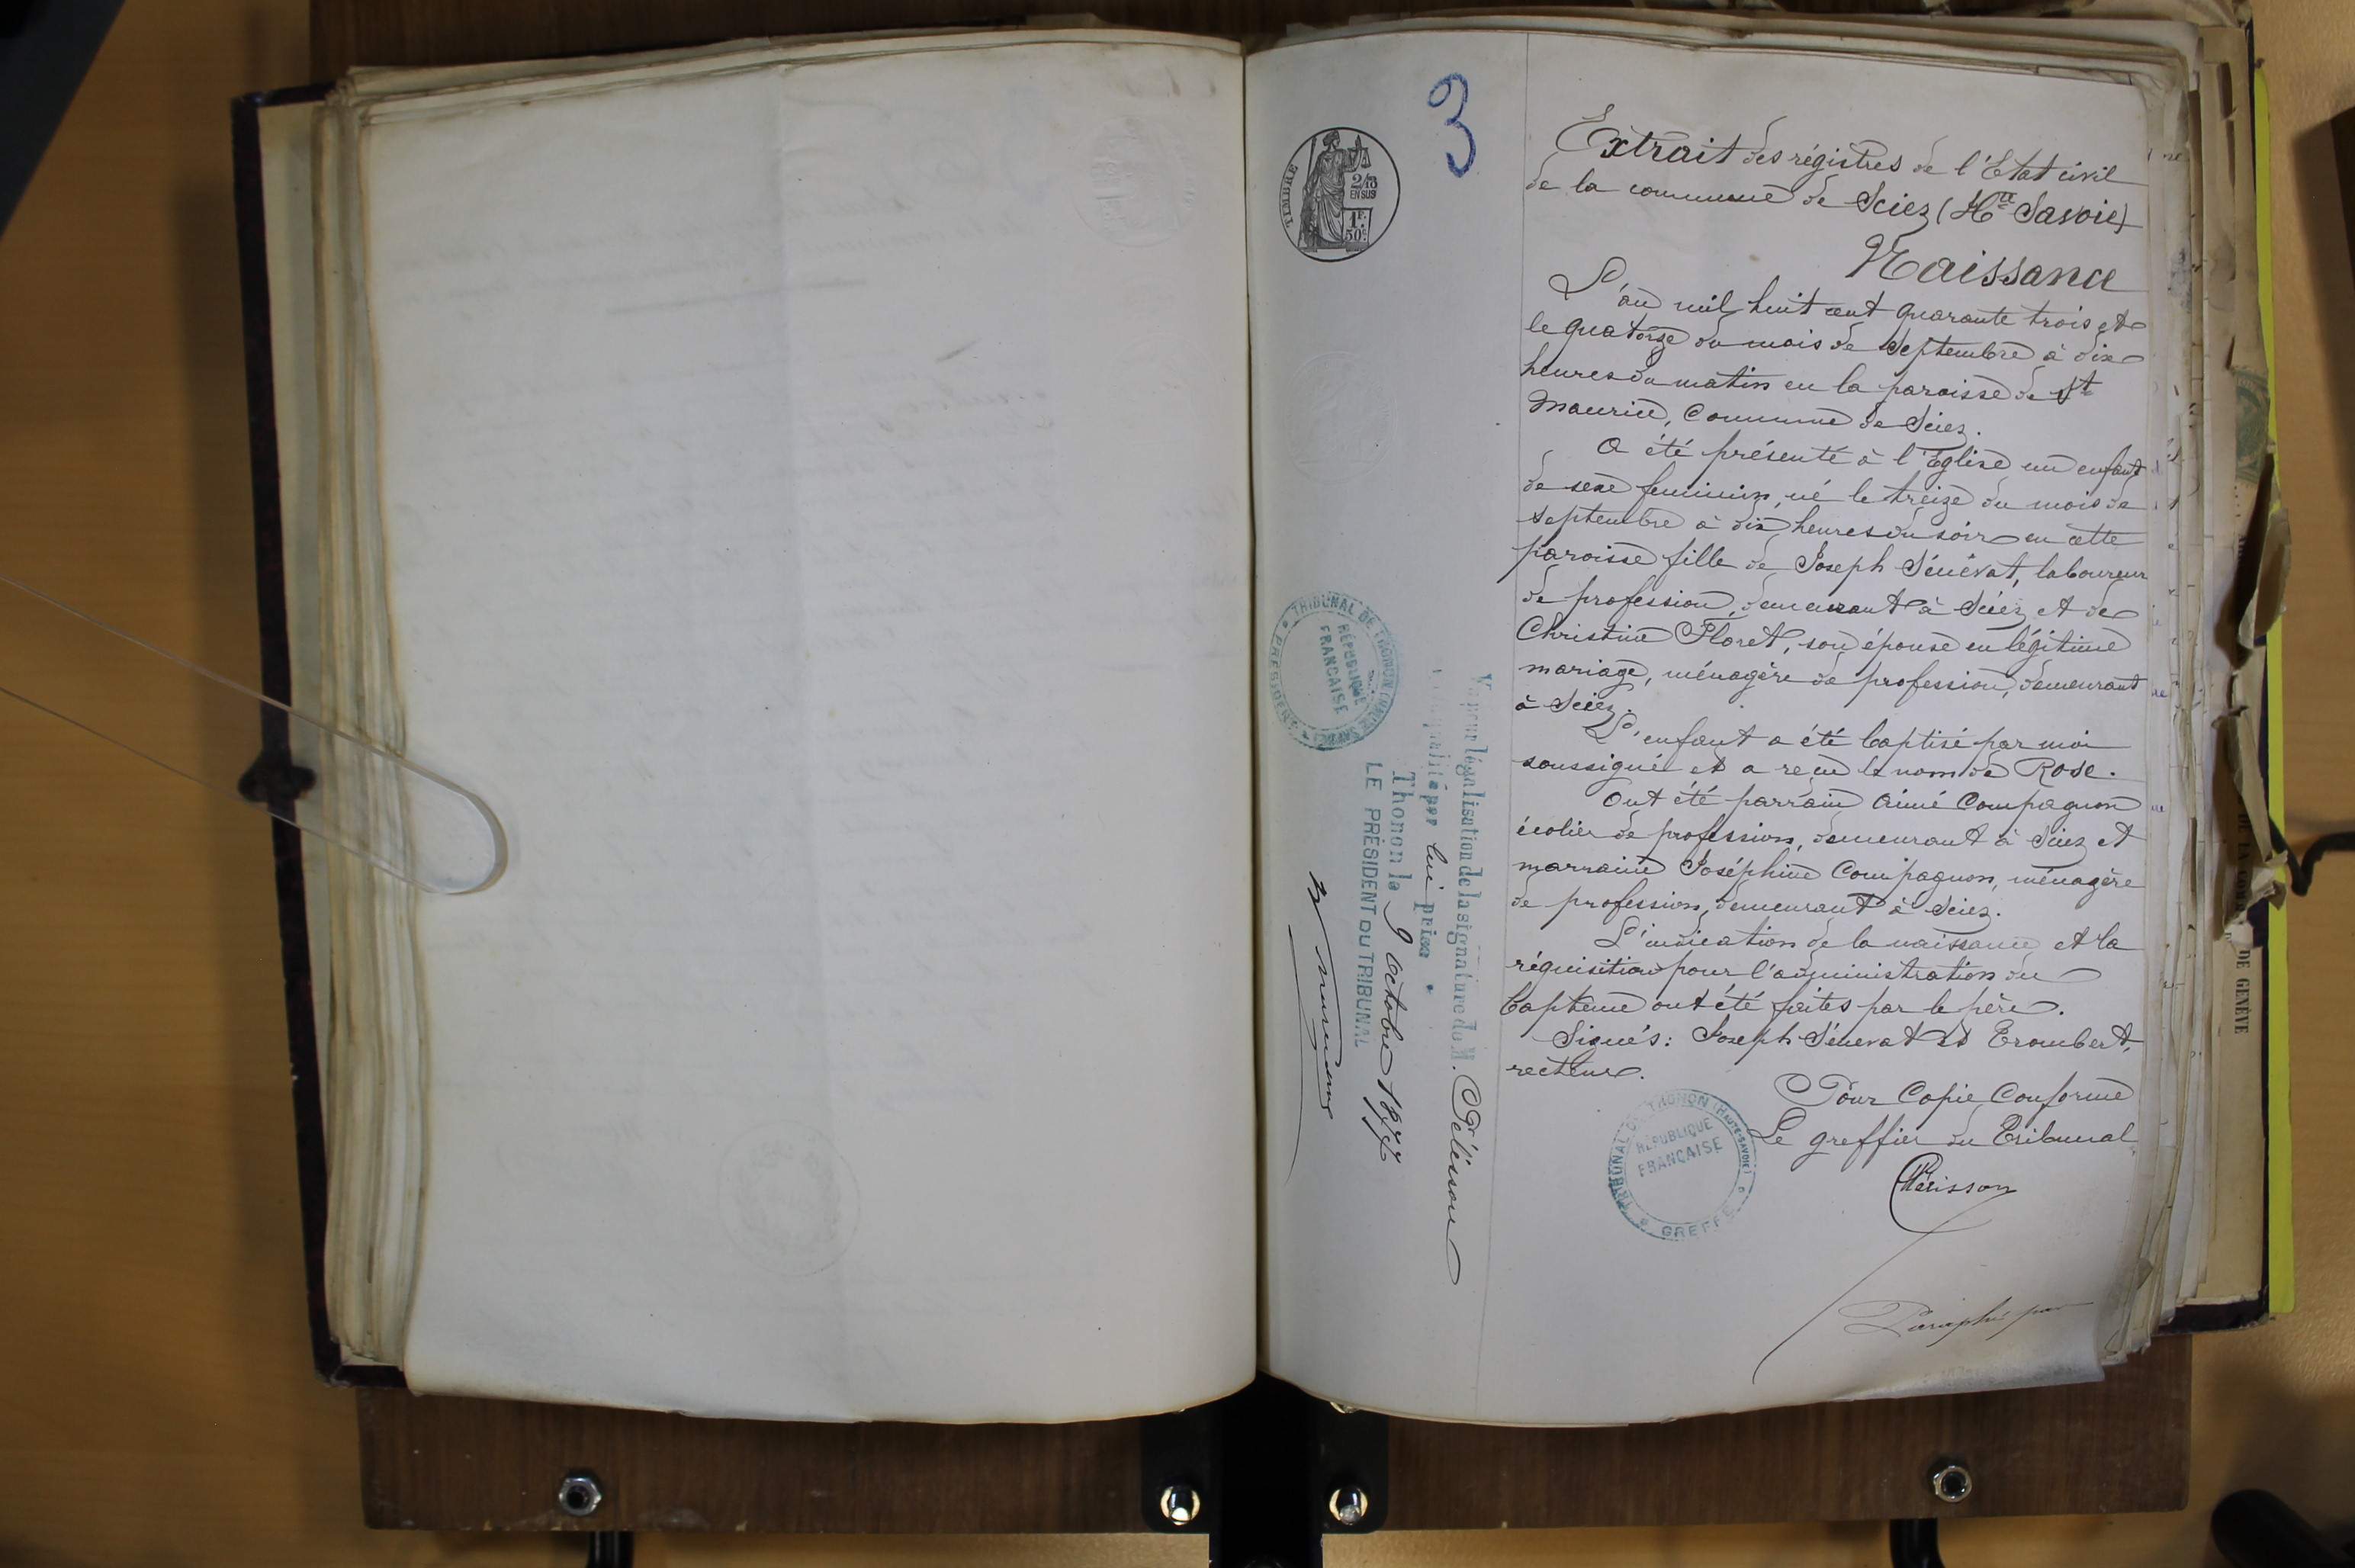 3
TIMBRE
2/10
EN SUS
1F.
50c
Extrait des régistres de l'Etat civil
de la commune de Sciez (Hte Savoie)
Naissance
L'an mil huit cent quarante trois et
le quatorze du mois de Septembre à dix
heures du matin en la paroisse de St
Maurice, Commune de Sciez.
A été présenté à l'Eglise un enfant
de sexe feminin, né le treize du mois de
septembre à dix heures du soir en cette
paroisse fille de Joseph Sénévat, laboureur
de profession, demeurant à Sciez et de
Christine Floret, son épouse en légitime
mariage, ménagère de profession, demeurant
à Sciez.
L'enfant a été baptisé par moi
soussigné et a reçu le nom de Rose.
Ont été parrain Aimé Compagnon
écolier de profession, demeurant à Sciez et
marraine Joséphine Compagnon, ménagère
de profession, demeurant à Sciez.
L'indication de la naissance et la
réquisition pour l'administration du
baptême ont été faites par le père.
Signés: Joseph Sénevat et Trombert,
recteur.
Pour Copie Conforme
Le greffier du Tribunal
TRIBUNAL DE THONON (HAUTE-SAVOIE)
RÉPUBLIQUE
FRANÇAISE
GREFFE
Paraphé par
Vu pour légalisation de la signature de M. Pélisson
qualité par lui prise.
Thonon le 9 Octobre 1877
LE PRÉSIDENT DU TRIBUNAL
TRIBUNAL DE THONON (HAUTE SAVOIE)
RÉPUBLIQUE
FRANÇAISE
PRÉSIDENT
DE GENÈVE